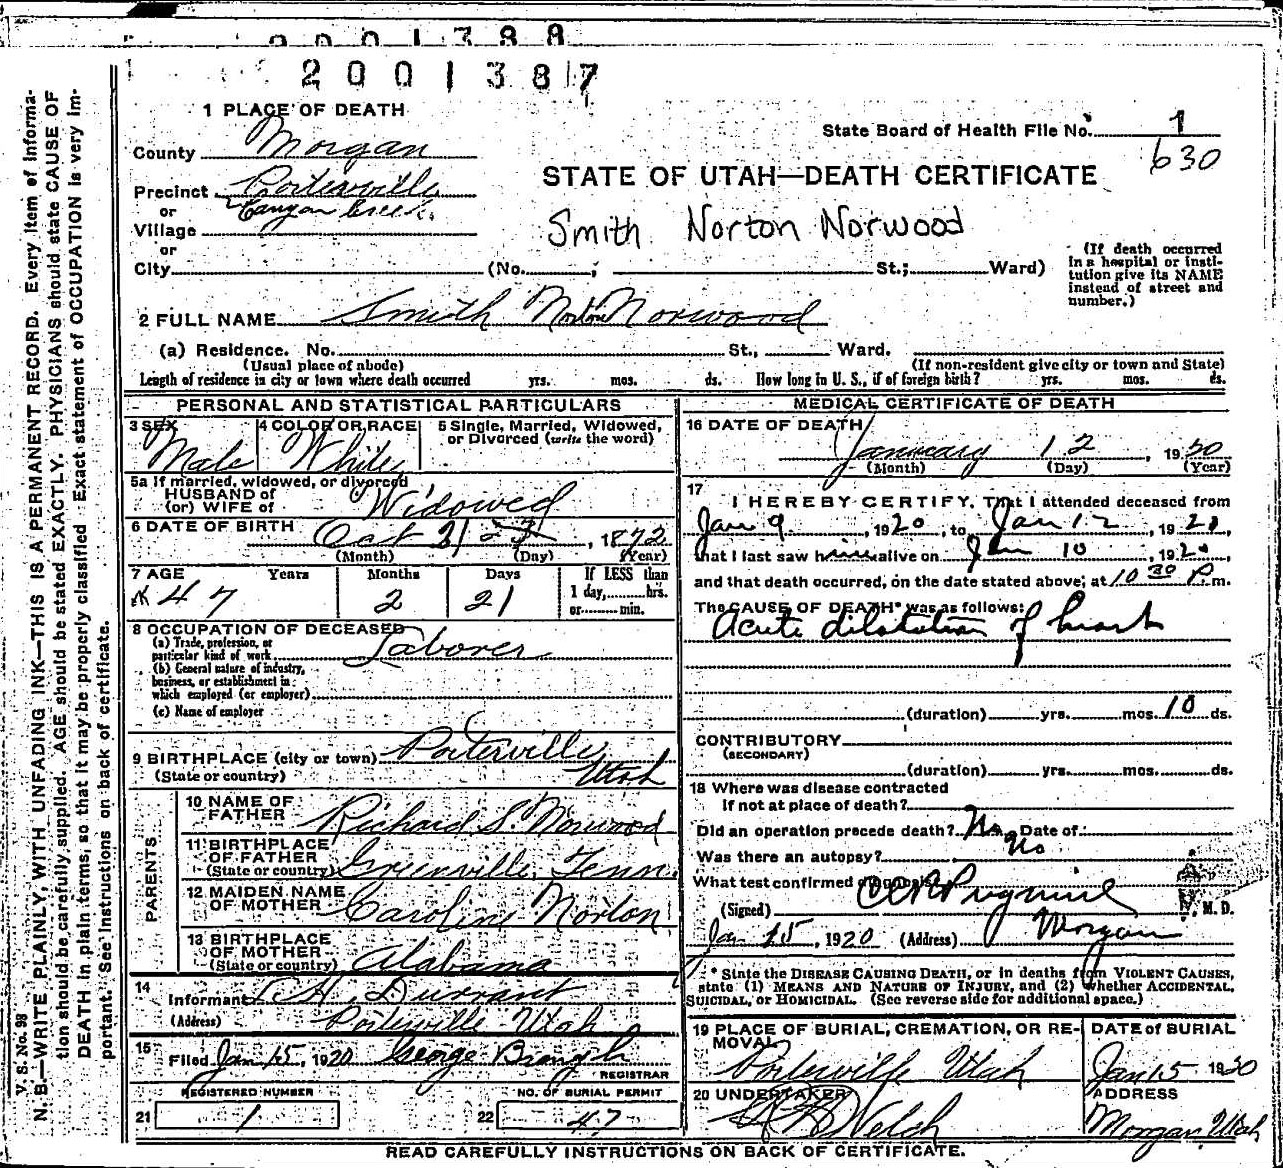 2001388
2001387
1 PLACE OF DEATH
State Board of Health File No. 1
630
County Morgan
STATE OF UTAH—DEATH CERTIFICATE
Precinct Porterville
or
Canyon Creek
Village
Smith Norton Norwood
or
City (No. ; St.; Ward)
(If death occurred in a hospital or institution give its NAME instead of street and number.)
2 FULL NAME Smith Norton Norwood
(a) Residence. No. St., Ward.
(Usual place of abode) (If non-resident give city or town and State)
Length of residence in city or town where death occurred yrs. mos. ds. How long in U. S., if of foreign birth? yrs. mos. ds.
PERSONAL AND STATISTICAL PARTICULARS
3 SEX 4 COLOR OR RACE 5 Single, Married, Widowed, or Divorced (write the word)
Male White
5a If married, widowed, or divorced
HUSBAND of
(or) WIFE of Widowed
6 DATE OF BIRTH Oct 21, 1872
(Month) (Day) (Year)
7 AGE Years Months Days If LESS than
1 day, hrs.
or min.
47 2 21
8 OCCUPATION OF DECEASED
(a) Trade, profession, or
particular kind of work Laborer
(b) General nature of industry,
business, or establishment in
which employed (or employer)
(c) Name of employer
9 BIRTHPLACE (city or town) Porterville
(State or country) Utah
PARENTS
10 NAME OF
FATHER Richard S. Norwood
11 BIRTHPLACE
OF FATHER
(State or country) Greenville, Tenn.
12 MAIDEN NAME
OF MOTHER Caroline Norton
13 BIRTHPLACE
OF MOTHER
(State or country) Alabama
14
Informant H. Durrant
(Address) Porterville Utah
15
Filed Jan 15, 1920 George Brough
REGISTRAR
REGISTERED NUMBER NO. OF BURIAL PERMIT
21 1 22 47
MEDICAL CERTIFICATE OF DEATH
16 DATE OF DEATH
January 12, 1920
(Month) (Day) (Year)
17
I HEREBY CERTIFY, That I attended deceased from
Jan 9, 1920, to Jan 12, 1920,
that I last saw him alive on Jan 10, 1920
and that death occurred, on the date stated above, at 10 30 P. m.
The CAUSE OF DEATH* was as follows:
Acute dilatation of heart
(duration) yrs. mos. 10 ds.
CONTRIBUTORY
(SECONDARY)
(duration) yrs. mos. ds.
18 Where was disease contracted
if not at place of death?
Did an operation precede death? No Date of
Was there an autopsy? No
What test confirmed diagnosis?
(Signed) M. D.
Jan 15, 1920 (Address) Morgan
* State the DISEASE CAUSING DEATH, or in deaths from VIOLENT CAUSES,
state (1) MEANS AND NATURE OF INJURY, and (2) whether ACCIDENTAL,
SUICIDAL, or HOMICIDAL. (See reverse side for additional space.)
19 PLACE OF BURIAL, CREMATION, OR RE-
MOVAL DATE of BURIAL
Porterville Utah Jan 15 1920
20 UNDERTAKER ADDRESS
Welch Morgan, Utah
READ CAREFULLY INSTRUCTIONS ON BACK OF CERTIFICATE.
V. S. No. 98
N. B.—WRITE PLAINLY, WITH UNFADING INK—THIS IS A PERMANENT RECORD. Every item of informa-
tion should be carefully supplied. AGE should be stated EXACTLY. PHYSICIANS should state CAUSE OF
DEATH in plain terms, so that it may be properly classified. Exact statement of OCCUPATION is very im-
portant. See Instructions on back of certificate.